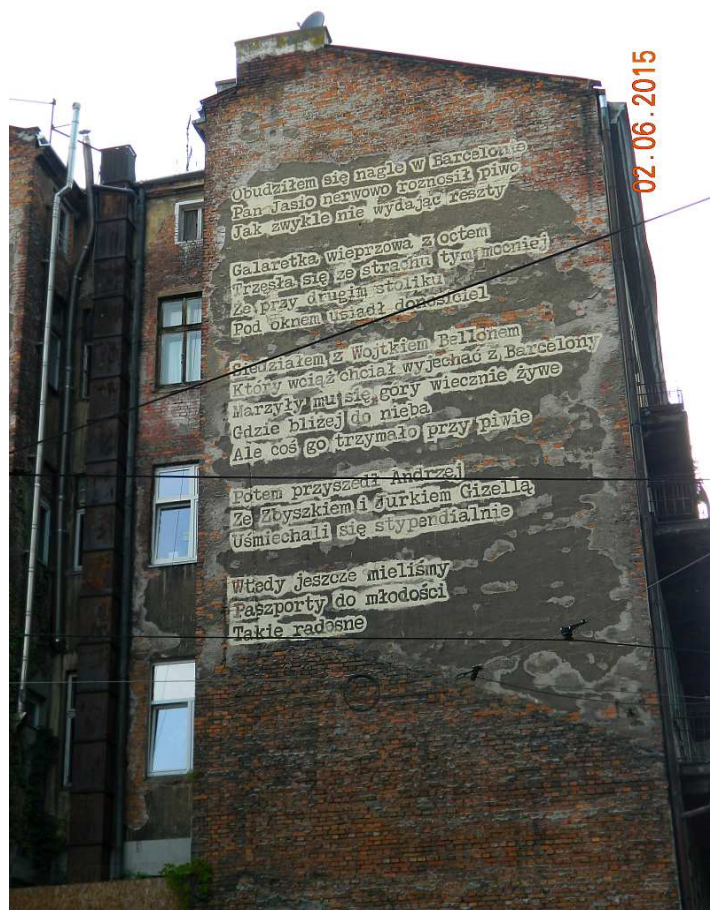 02.06.2015
Obudziłem się nagle w Barcelonie
Pan Jasio nerwowo roznosił piwo
Jak zwykle nie wydając reszty
Galaretka wieprzowa z octem
Trzęsła się ze strachu tym mocniej
Że przy drugim stoliku
Pod oknem usiadł donosiciel
Siedziałem z Wojtkiem Bellonem
Który wciąż chciał wyjechać z Barcelony
Marzyły mu się góry wiecznie żywe
Gdzie bliżej do nieba
Ale coś go trzymało przy piwie
Potem przyszedł Andrzej
Ze Zbyszkiem i Jurkiem Gizellą
Uśmiechali się stypendialnie
Wtedy jeszcze mieliśmy
Paszporty do młodości
Takie radosne